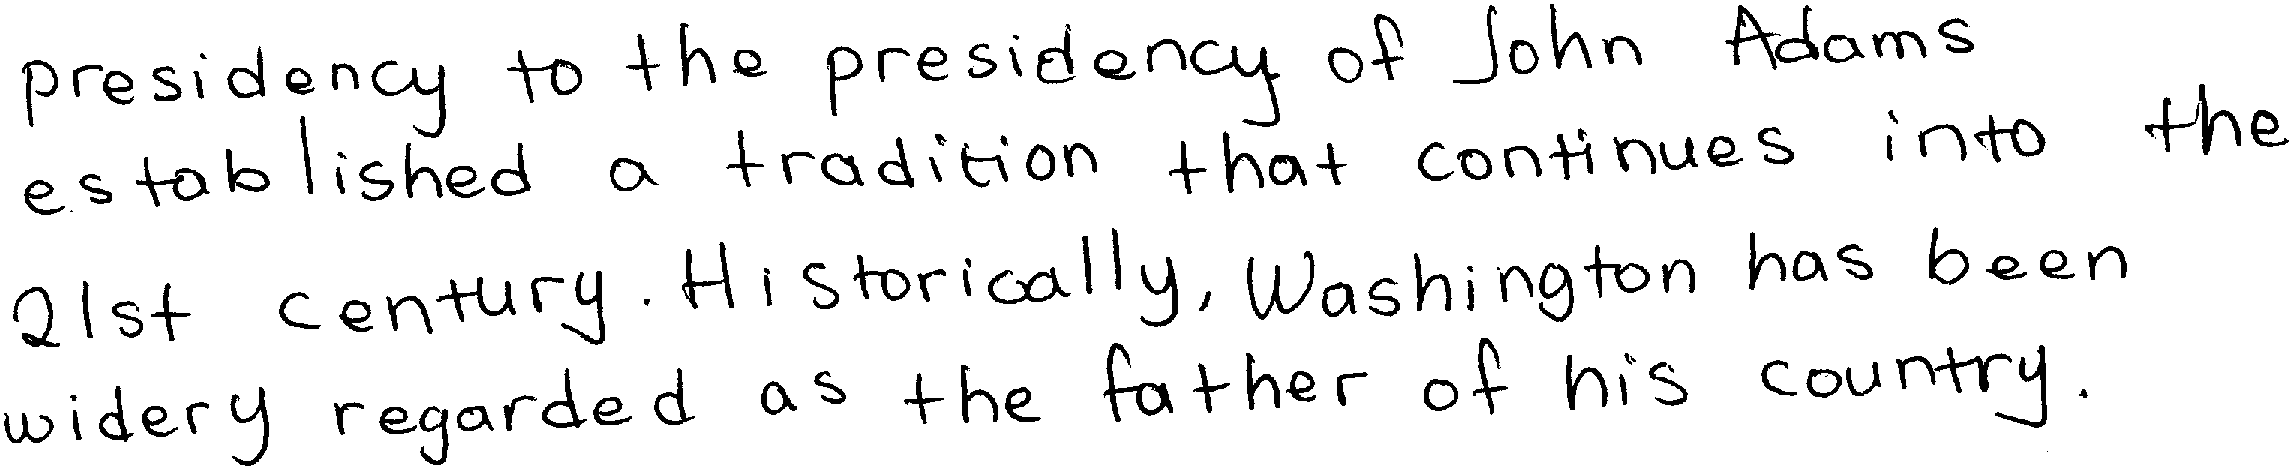 presidency to the presidency of John Adams
established a tradition that continues into the
21st century. Historically, Washington has been
widery regarded as the father of his country.